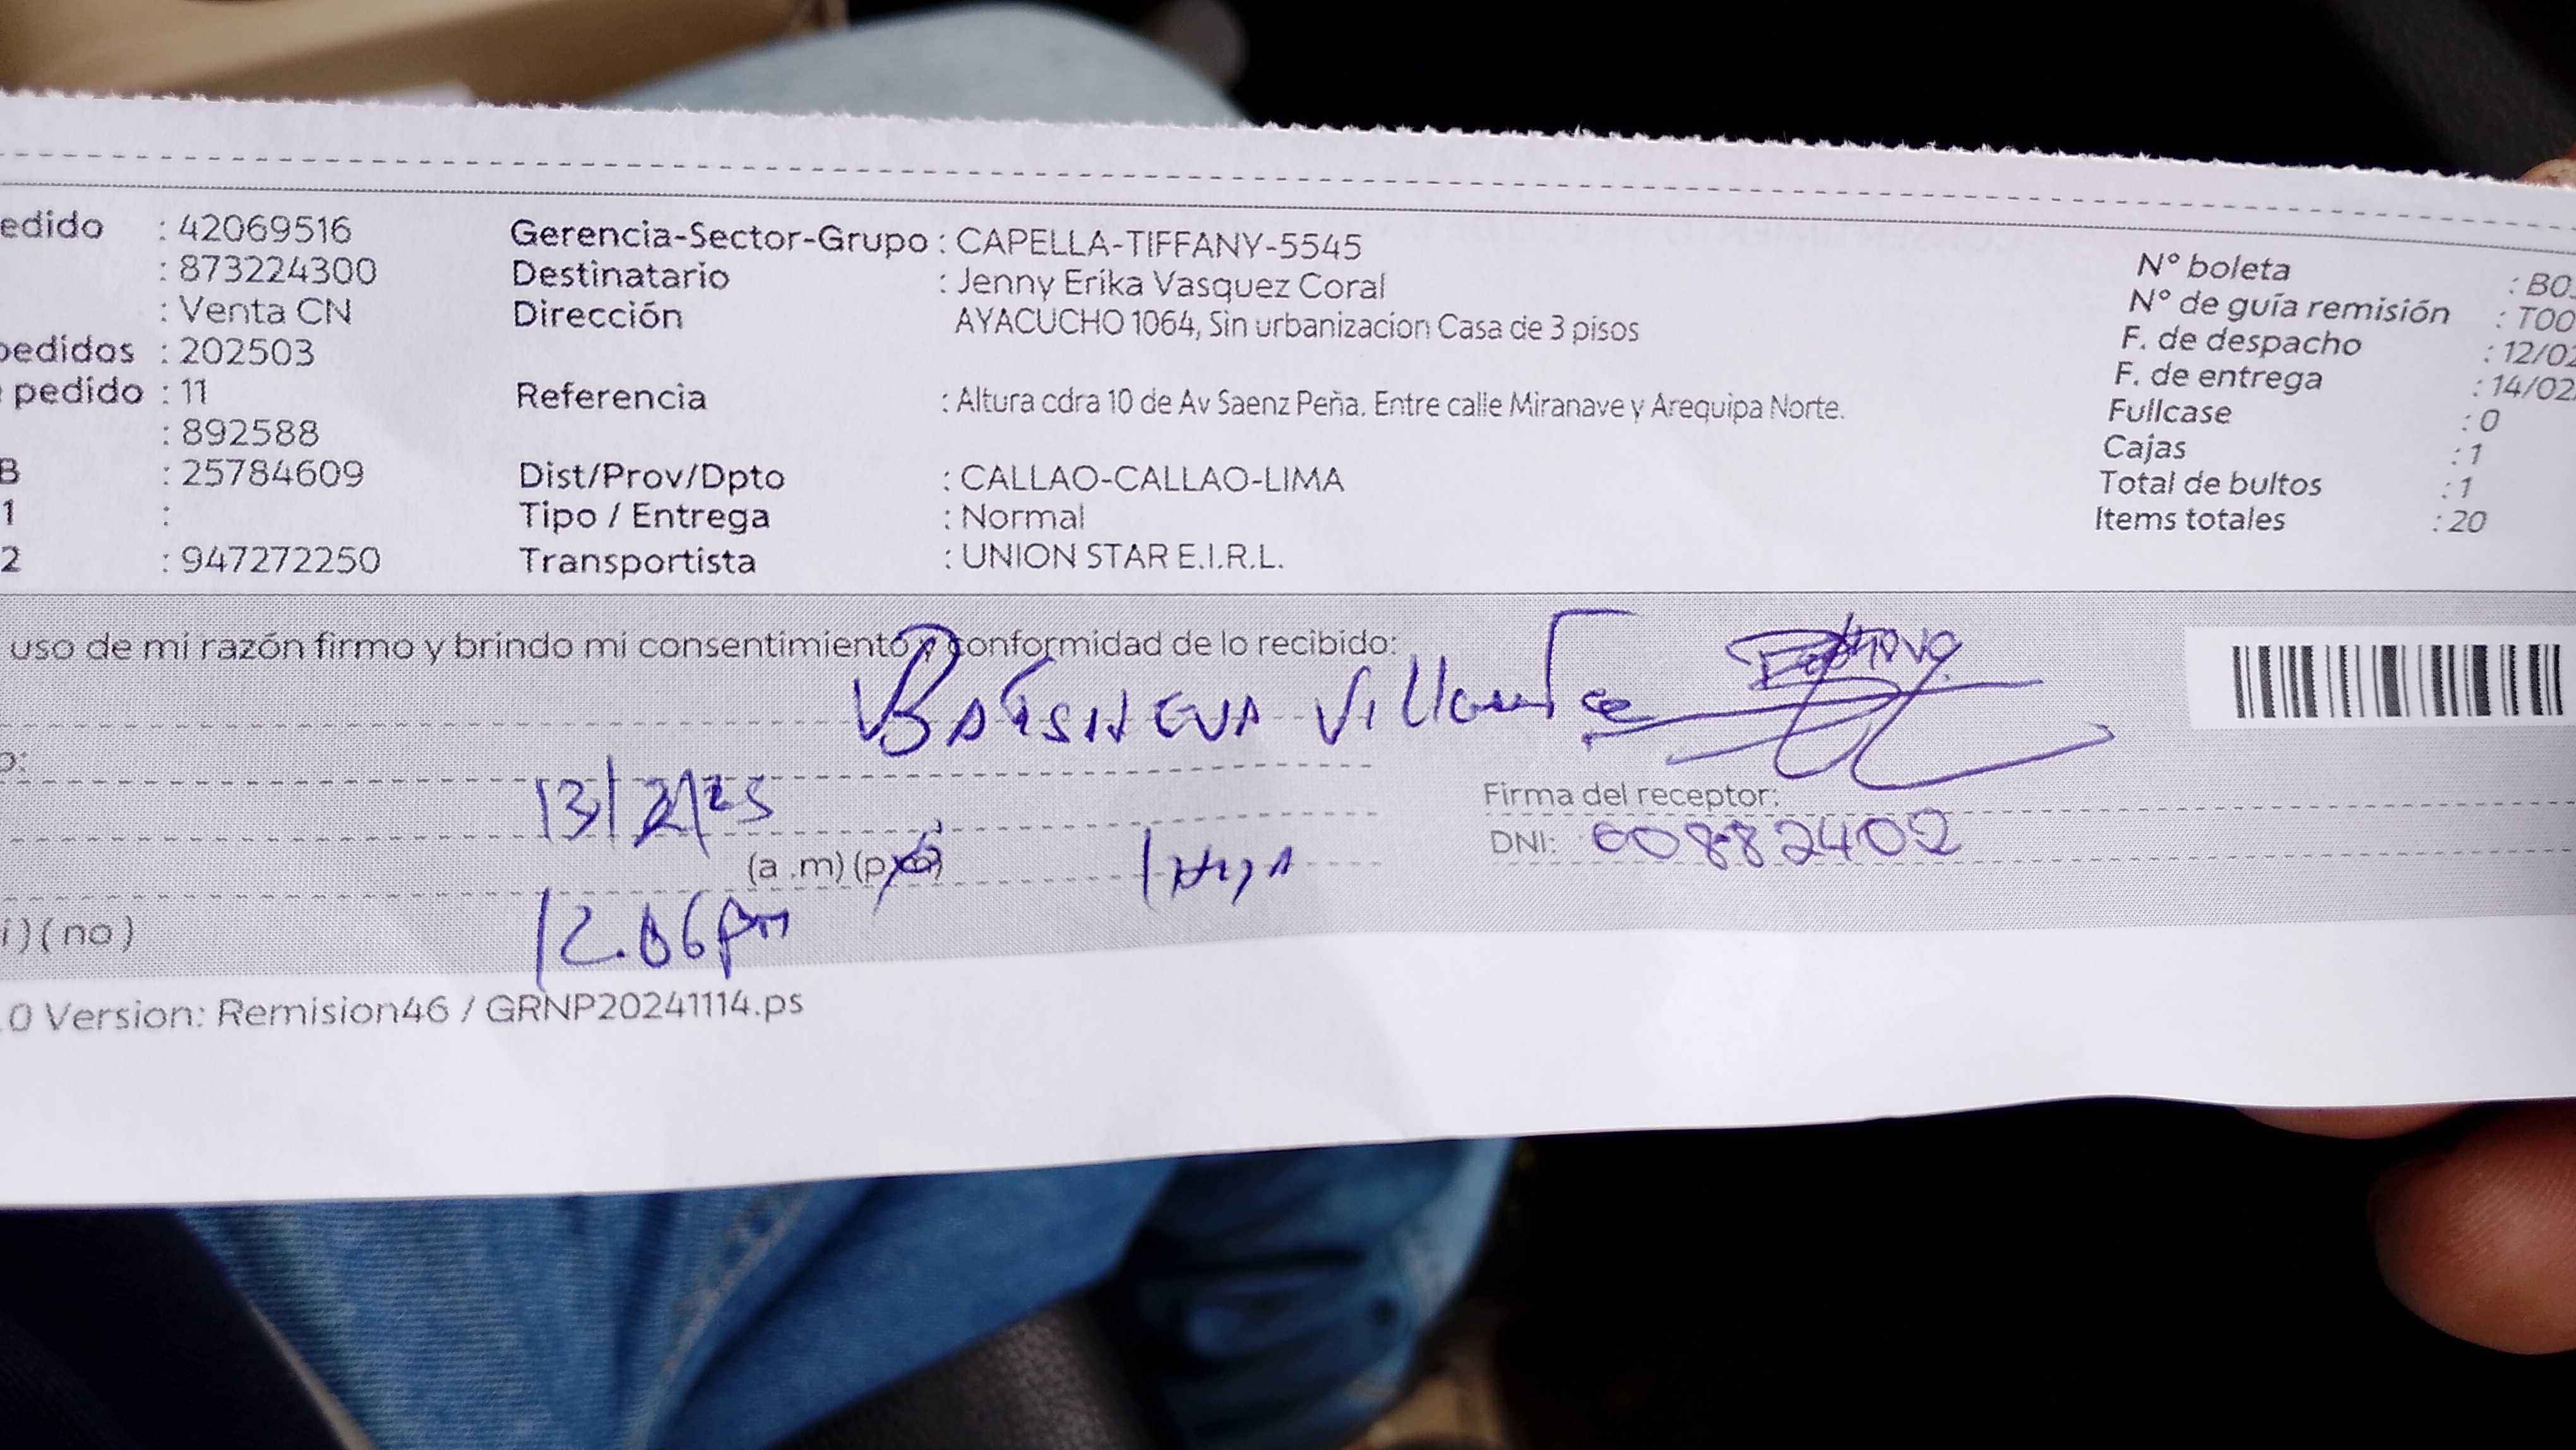 edido : 42069516 Gerencia-Sector-Grupo : CAPELLA-TIFFANY-5545
: 873224300 Destinatario : Jenny Erika Vasquez Coral Nº boleta : B0
: Venta CN Dirección AYACUCHO 1064, Sin urbanizacion Casa de 3 pisos Nº de guía remisión : T00
pedidos : 202503 F. de despacho : 12/02
pedido : 11 Referencia : Altura cdra 10 de Av Saenz Peña. Entre calle Miranave y Arequipa Norte. F. de entrega : 14/02
: 892588 Fullcase : 0
B : 25784609 Dist/Prov/Dpto : CALLAO-CALLAO-LIMA Cajas : 1
1 : Tipo / Entrega : Normal Total de bultos : 1
2 : 947272250 Transportista : UNION STAR E.I.R.L. Items totales : 20
uso de mi razón firmo y brindo mi consentimiento y conformidad de lo recibido:
o:
13/2/25 Firma del receptor:
(a .m) (p.m) DNI: 00882402
12.06pm
i ) ( no )
.0 Version: Remision46 / GRNP20241114.ps